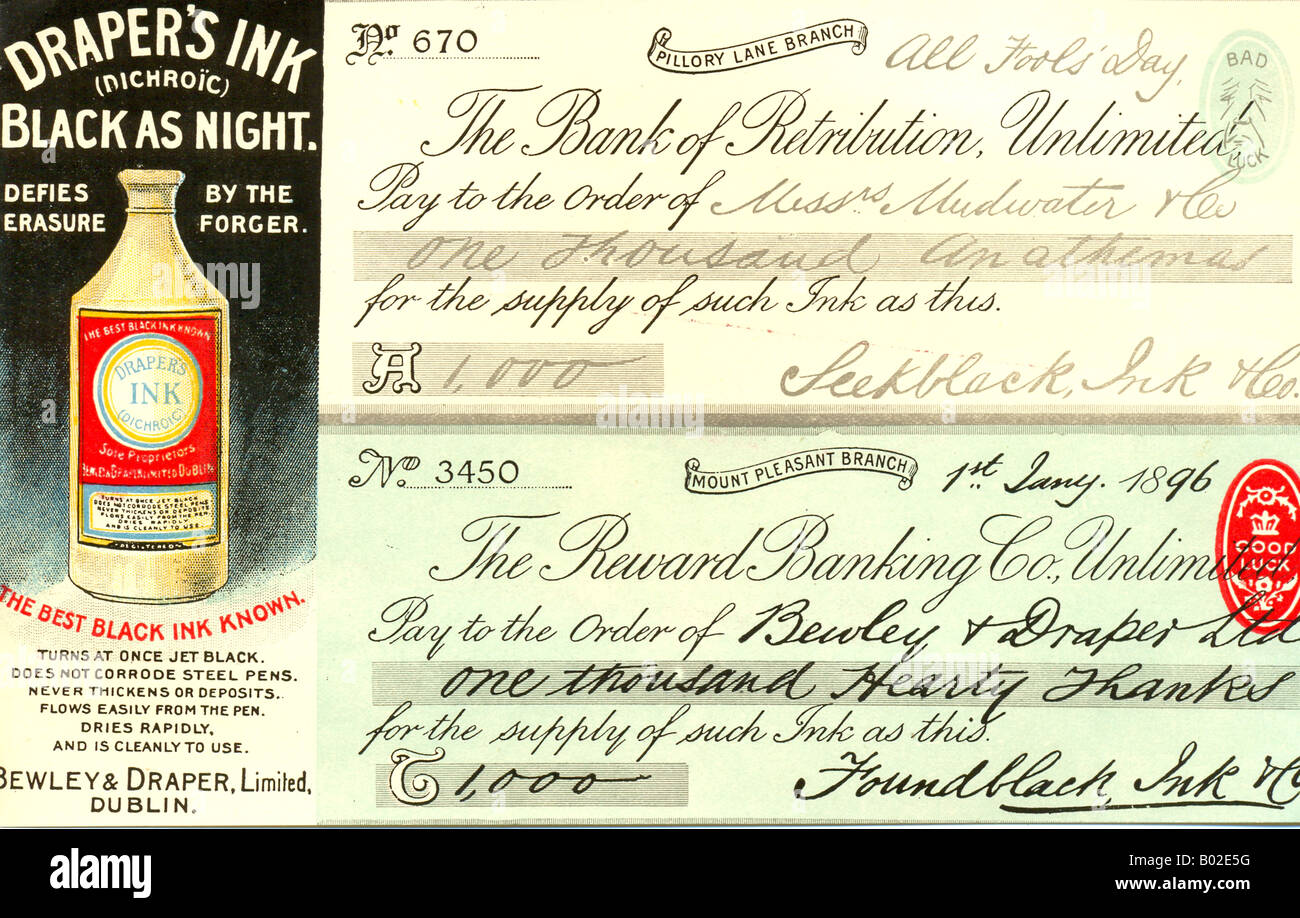 DRAPER'S INK
(DICHROÏC)
BLACK AS NIGHT.
DEFIES BY THE
ERASURE FORGER.
THE BEST BLACK INK KNOWN
DRAPER'S
INK
(DICHROIC)
Sole Proprietors
BEWLEY & DRAPER LIMITED DUBLIN
TURNS AT ONCE JET BLACK
DOES NOT CORRODE STEEL PENS
NEVER THICKENS OR DEPOSITS
FLOWS EASILY FROM THE PEN
DRIES RAPIDLY
AND IS CLEANLY TO USE
REGISTERED
THE BEST BLACK INK KNOWN.
TURNS AT ONCE JET BLACK.
DOES NOT CORRODE STEEL PENS.
NEVER THICKENS OR DEPOSITS.
FLOWS EASILY FROM THE PEN.
DRIES RAPIDLY,
AND IS CLEANLY TO USE.
BEWLEY & DRAPER, Limited,
DUBLIN.
No. 670
PILLORY LANE BRANCH
All Fools' Day,
BAD
LUCK
The Bank of Retribution, Unlimited,
Pay to the Order of Messrs Mudwater & Co
One Thousand Anathemas
for the supply of such Ink as this.
A 1,000
Seekblack, Ink & Co.
No. 3450
MOUNT PLEASANT BRANCH
1st Jany. 1896
GOOD
LUCK
The Reward Banking Co., Unlimited
Pay to the Order of Bewley & Draper Ltd
One thousand Hearty Thanks
for the supply of such Ink as this.
T 1,000
Foundblack, Ink & C
alamy
Image ID: B02E5G
www.alamy.com